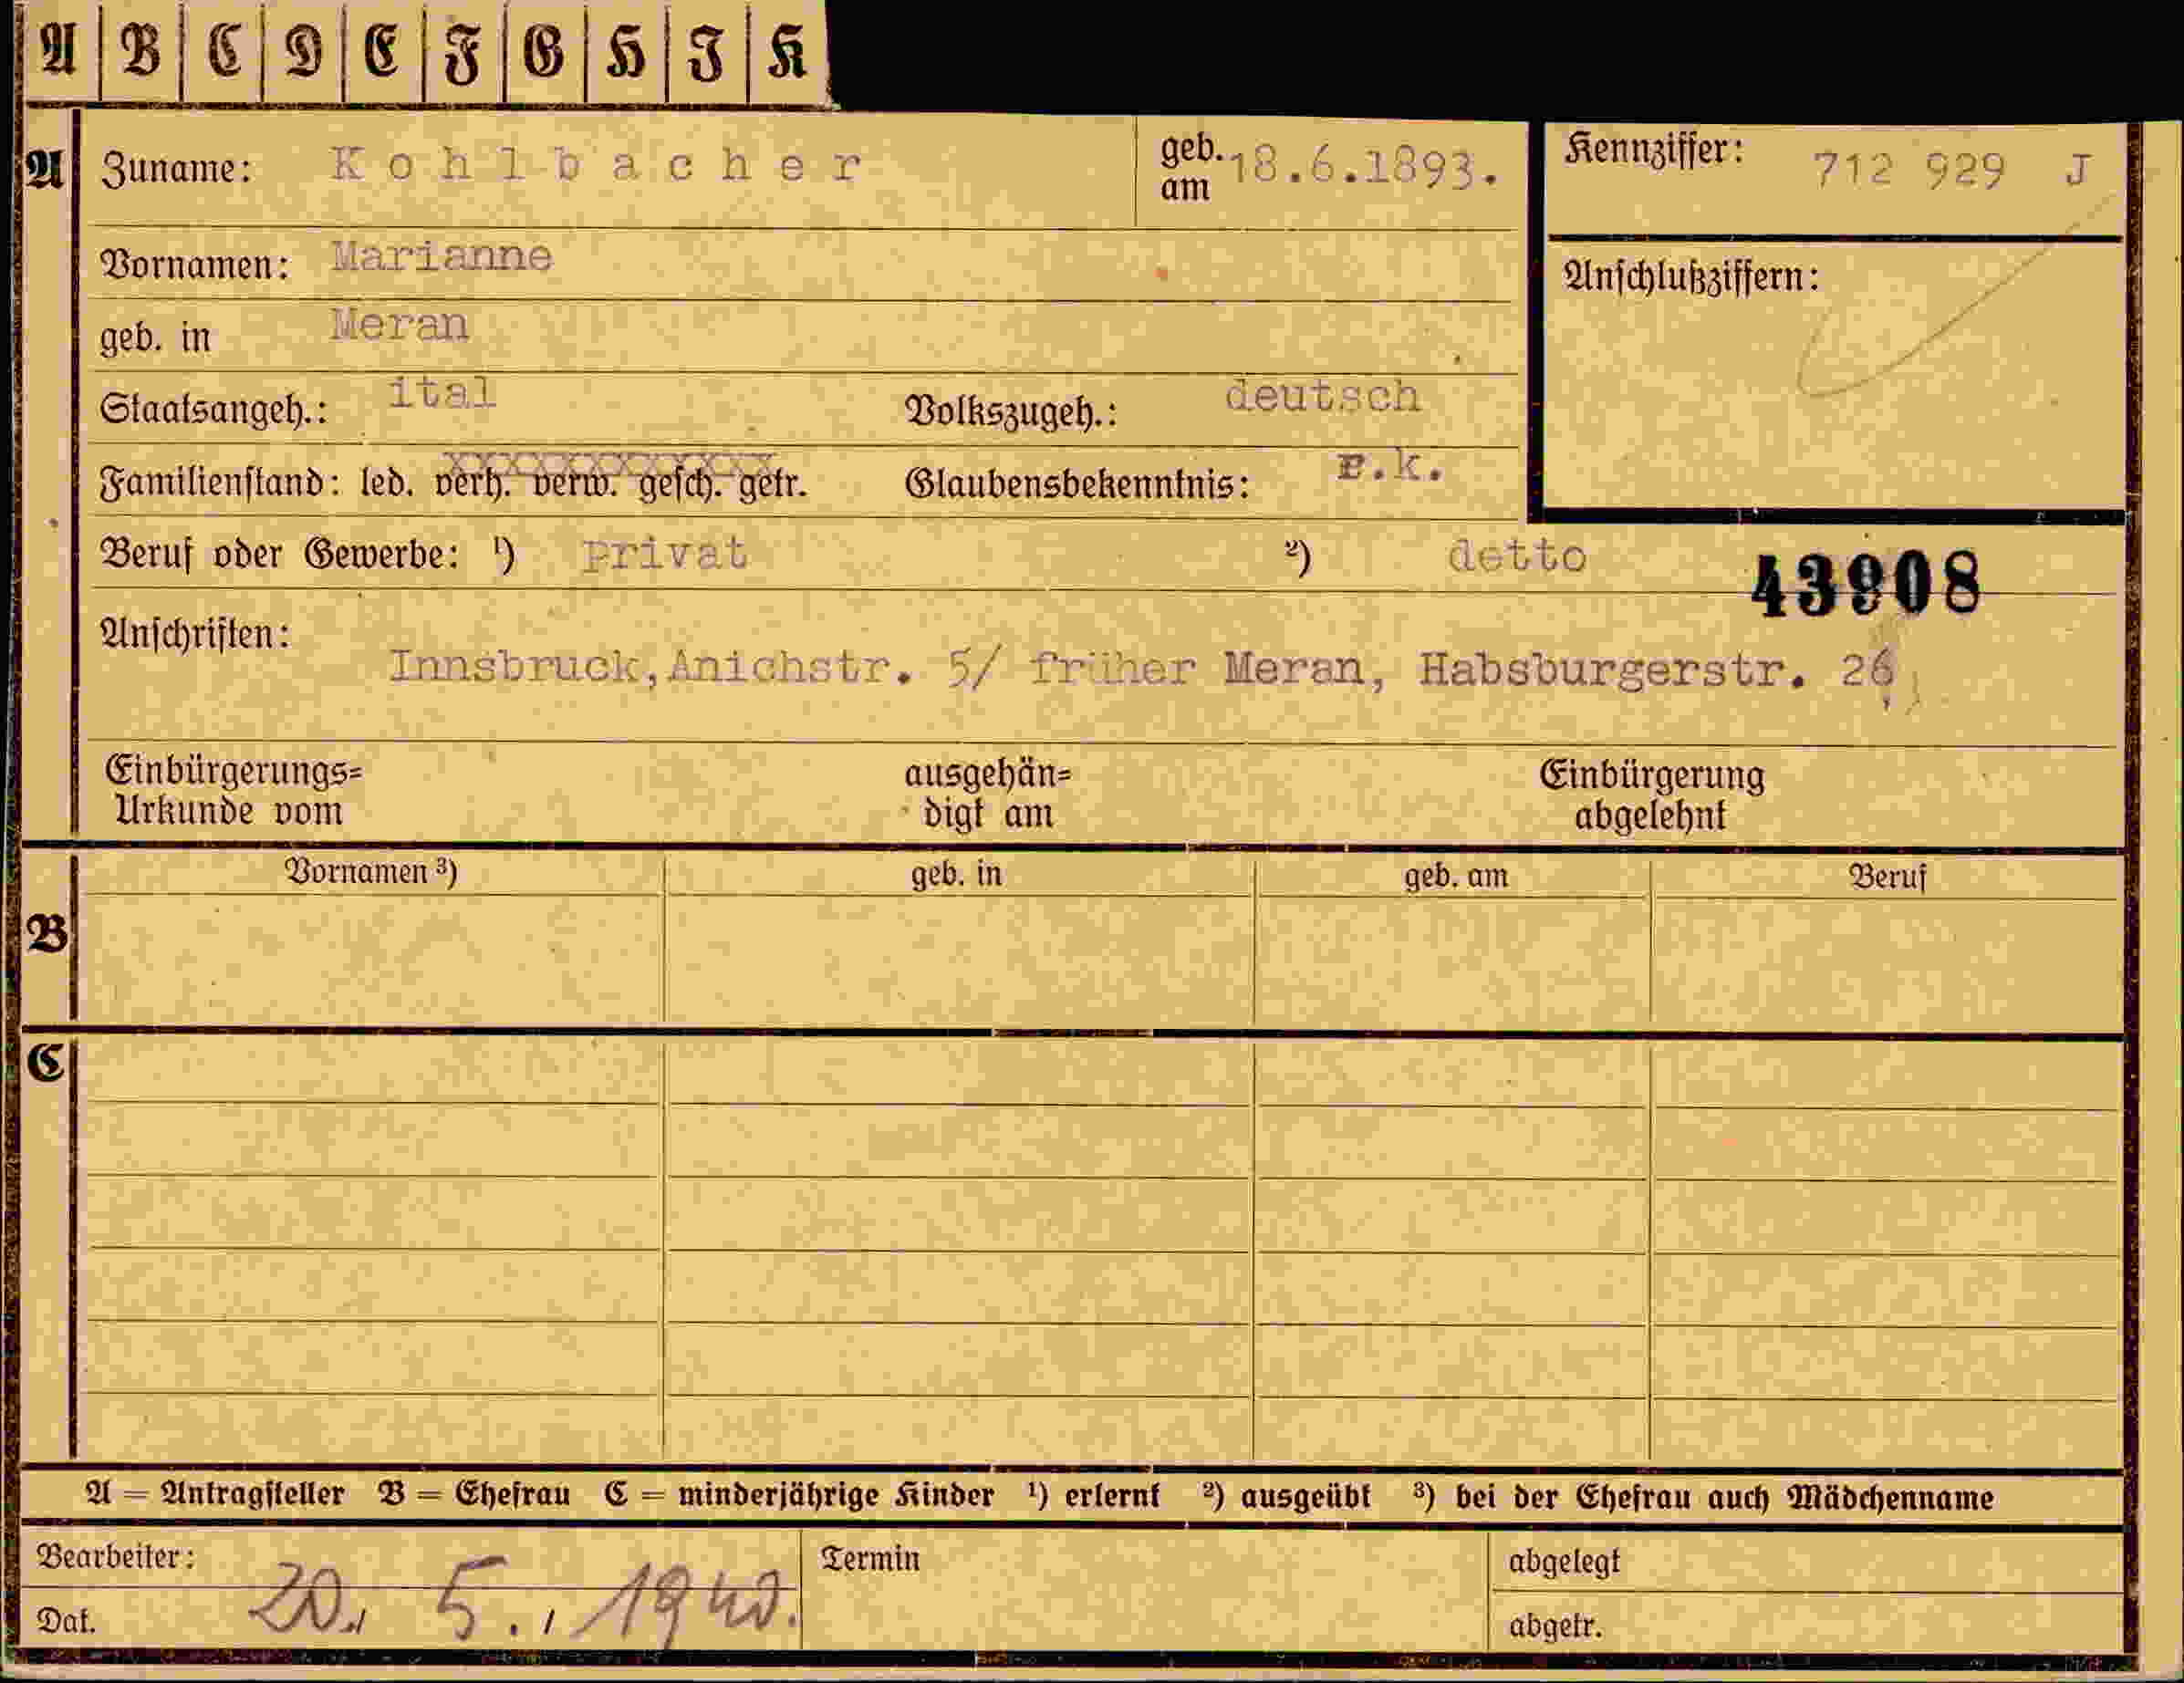 A B C D E F G H I K
A Zuname: Kohlbacher geb. am 18.6.1893. Kennziffer: 712 929 J
Vornamen: Marianne Anschlußziffern:
geb. in Meran
Staatsangeh.: ital Volkszugeh.: deutsch
Familienstand: led. verh. verw. gesch. getr. Glaubensbekenntnis: r.k.
Beruf oder Gewerbe: ¹) privat ²) detto 43908
Anschriften:
Innsbruck,Anichstr. 5/ früher Meran, Habsburgerstr. 26
Einbürgerungs= ausgehän= Einbürgerung
Urkunde vom digt am abgelehnt
Vornamen ³) geb. in geb. am Beruf
B
C
A = Antragsteller B = Ehefrau C = minderjährige Kinder ¹) erlernt ²) ausgeübt ³) bei der Ehefrau auch Mädchenname
Bearbeiter: Termin abgelegt
Dat. 20. 5. 1940. abgetr.